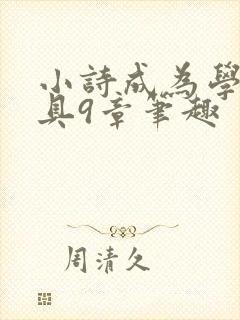 小詩成為學
具9章筆趣
周清久